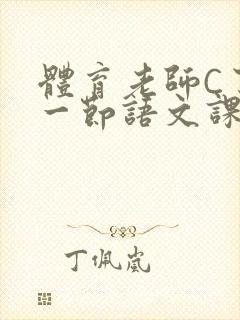 體育老師C
一節語文課
丁佩嵐